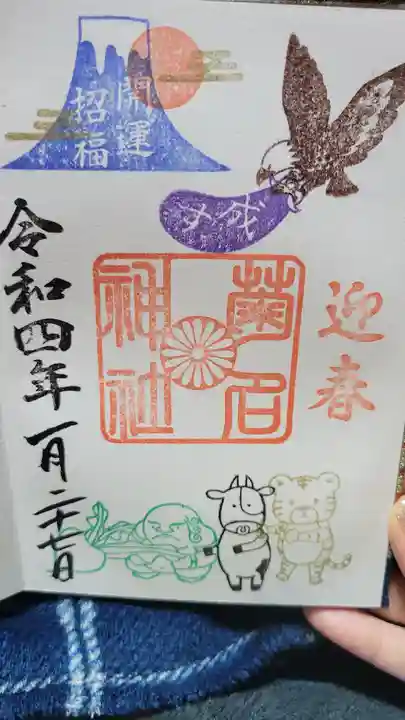 開運
招福
成す
迎春
菊名
神社
令和四年一月二十七日